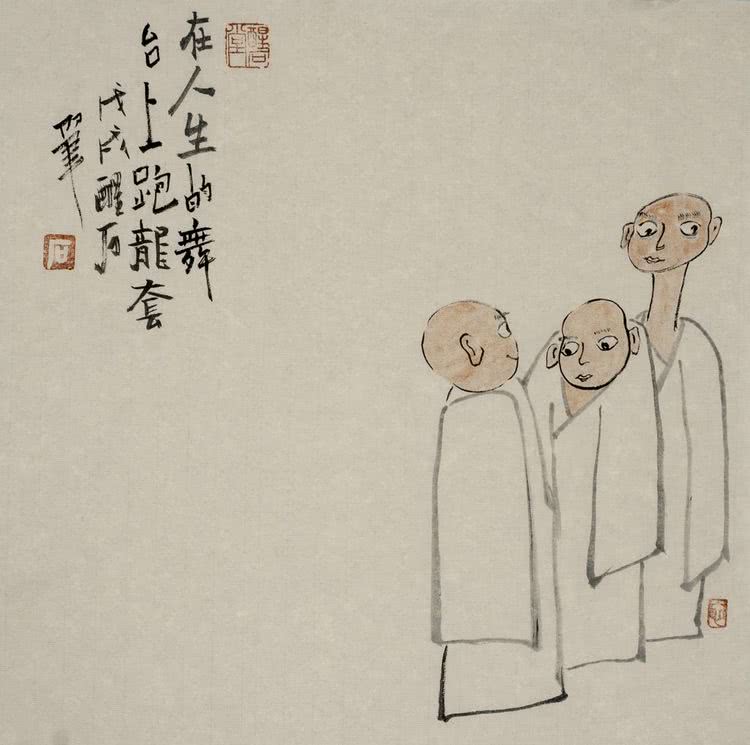 在人生的舞
台上跑龍套
戊戌醒石
筆
石